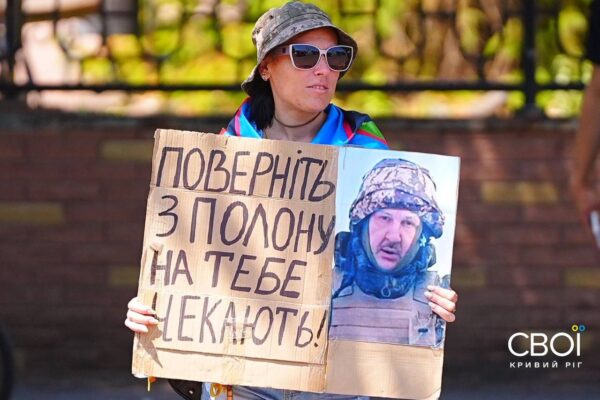 ПОВЕРНІТЬ
З ПОЛОНУ
НА ТЕБЕ
ЧЕКАЮТЬ!
СВОЇ
КРИВИЙ РІГ